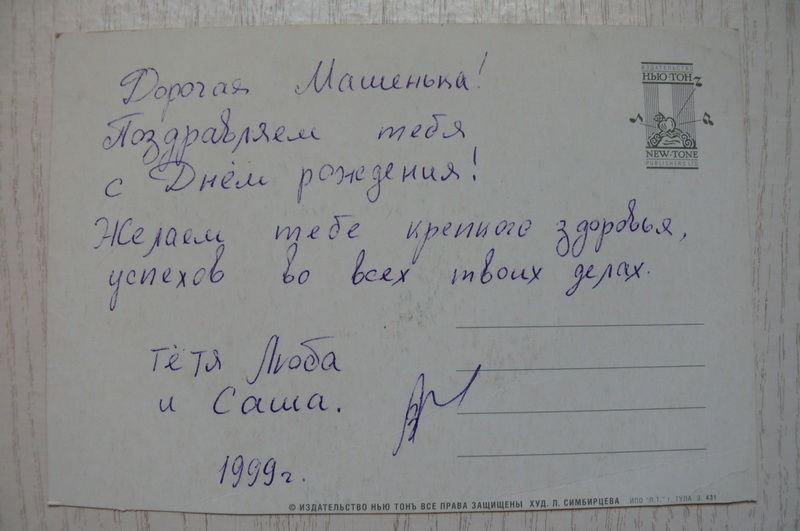 Дорогая Машенька!
Поздравляем тебя
с Днём рождения!
Желаем тебе крепкого здоровья,
успехов во всех твоих делах.
тётя Люба
и Саша.
1999г.
ИЗДАТЕЛЬСТВО
НЬЮ·ТОНЪ
NEW·TONE
PUBLISHERS LTD
© ИЗДАТЕЛЬСТВО НЬЮ ТОНЪ ВСЕ ПРАВА ЗАЩИЩЕНЫ ХУД. Л. СИМБИРЦЕВА ИПО "Л.Т." г. ТУЛА З. 431